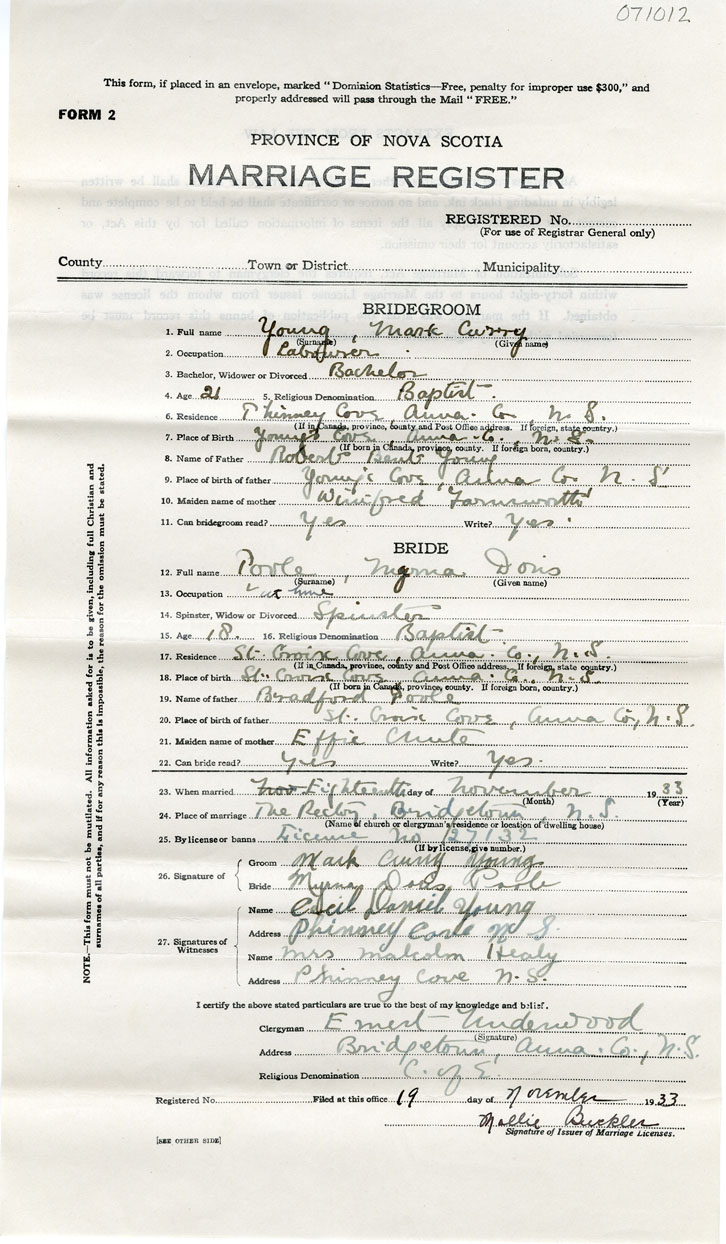 071012
This form, if placed in an envelope, marked "Dominion Statistics—Free, penalty for improper use $300," and
properly addressed will pass through the Mail "FREE."
FORM 2
PROVINCE OF NOVA SCOTIA
MARRIAGE REGISTER
REGISTERED No.
(For use of Registrar General only)
County Town or District Municipality
BRIDEGROOM
1. Full name Young, Mark Curry
(Surname) (Given name)
2. Occupation Labourer
3. Bachelor, Widower or Divorced Bachelor
4. Age 21 5. Religious Denomination Baptist
6. Residence Phinney Cove, Anna. Co., N. S.
(If in Canada, province, county and Post Office address. If foreign, state country.)
7. Place of Birth Young's Cove, Anna. Co., N. S.
(If born in Canada, province, county. If foreign born, country.)
8. Name of Father Robert Bent Young
9. Place of birth of father Young's Cove, Anna Co, N. S.
10. Maiden name of mother Winifred Farnsworth
11. Can bridegroom read? Yes Write? Yes
BRIDE
12. Full name Poole, Myrna Doris
(Surname) (Given name)
13. Occupation at home
14. Spinster, Widow or Divorced Spinster
15. Age 18. 16. Religious Denomination Baptist
17. Residence St. Croix Cove, Anna. Co., N. S.
(If in Canada, province, county and Post Office address. If foreign, state country.)
18. Place of birth St. Croix Cove, Anna. Co., N. S.
(If born in Canada, province, county. If foreign born, country.)
19. Name of father Bradford Poole
20. Place of birth of father St. Croix Cove, Anna Co, N. S.
21. Maiden name of mother Effie Chute
22. Can bride read? Yes Write? Yes.
23. When married Nov Eighteenth day of November 1933
(Month) (Year)
24. Place of marriage The Rectory, Bridgetown, N. S.
(Name of church or clergyman's residence or location of dwelling house)
25. By license or banns License No 27132
(If by license, give number.)
26. Signature of
Groom Mark Curry Young
Bride Myrna Doris Poole
27. Signatures of Witnesses
Name Cecil Daniel Young
Address Phinney Cove N S.
Name Mrs Malcolm Healy
Address Phinney Cove N. S.
I certify the above stated particulars are true to the best of my knowledge and belief.
Clergyman Ernest Underwood
(Signature)
Address Bridgetown, Anna. Co., N. S.
Religious Denomination C. of E.
Registered No. Filed at this office 19 day of November 1933
Mollie Buckler
Signature of Issuer of Marriage Licenses.
[SEE OTHER SIDE]
NOTE.—This form must not be mutilated. All information asked for is to be given, including full Christian and
surnames of all parties, and if for any reason this is impossible, the reason for the omission must be stated.